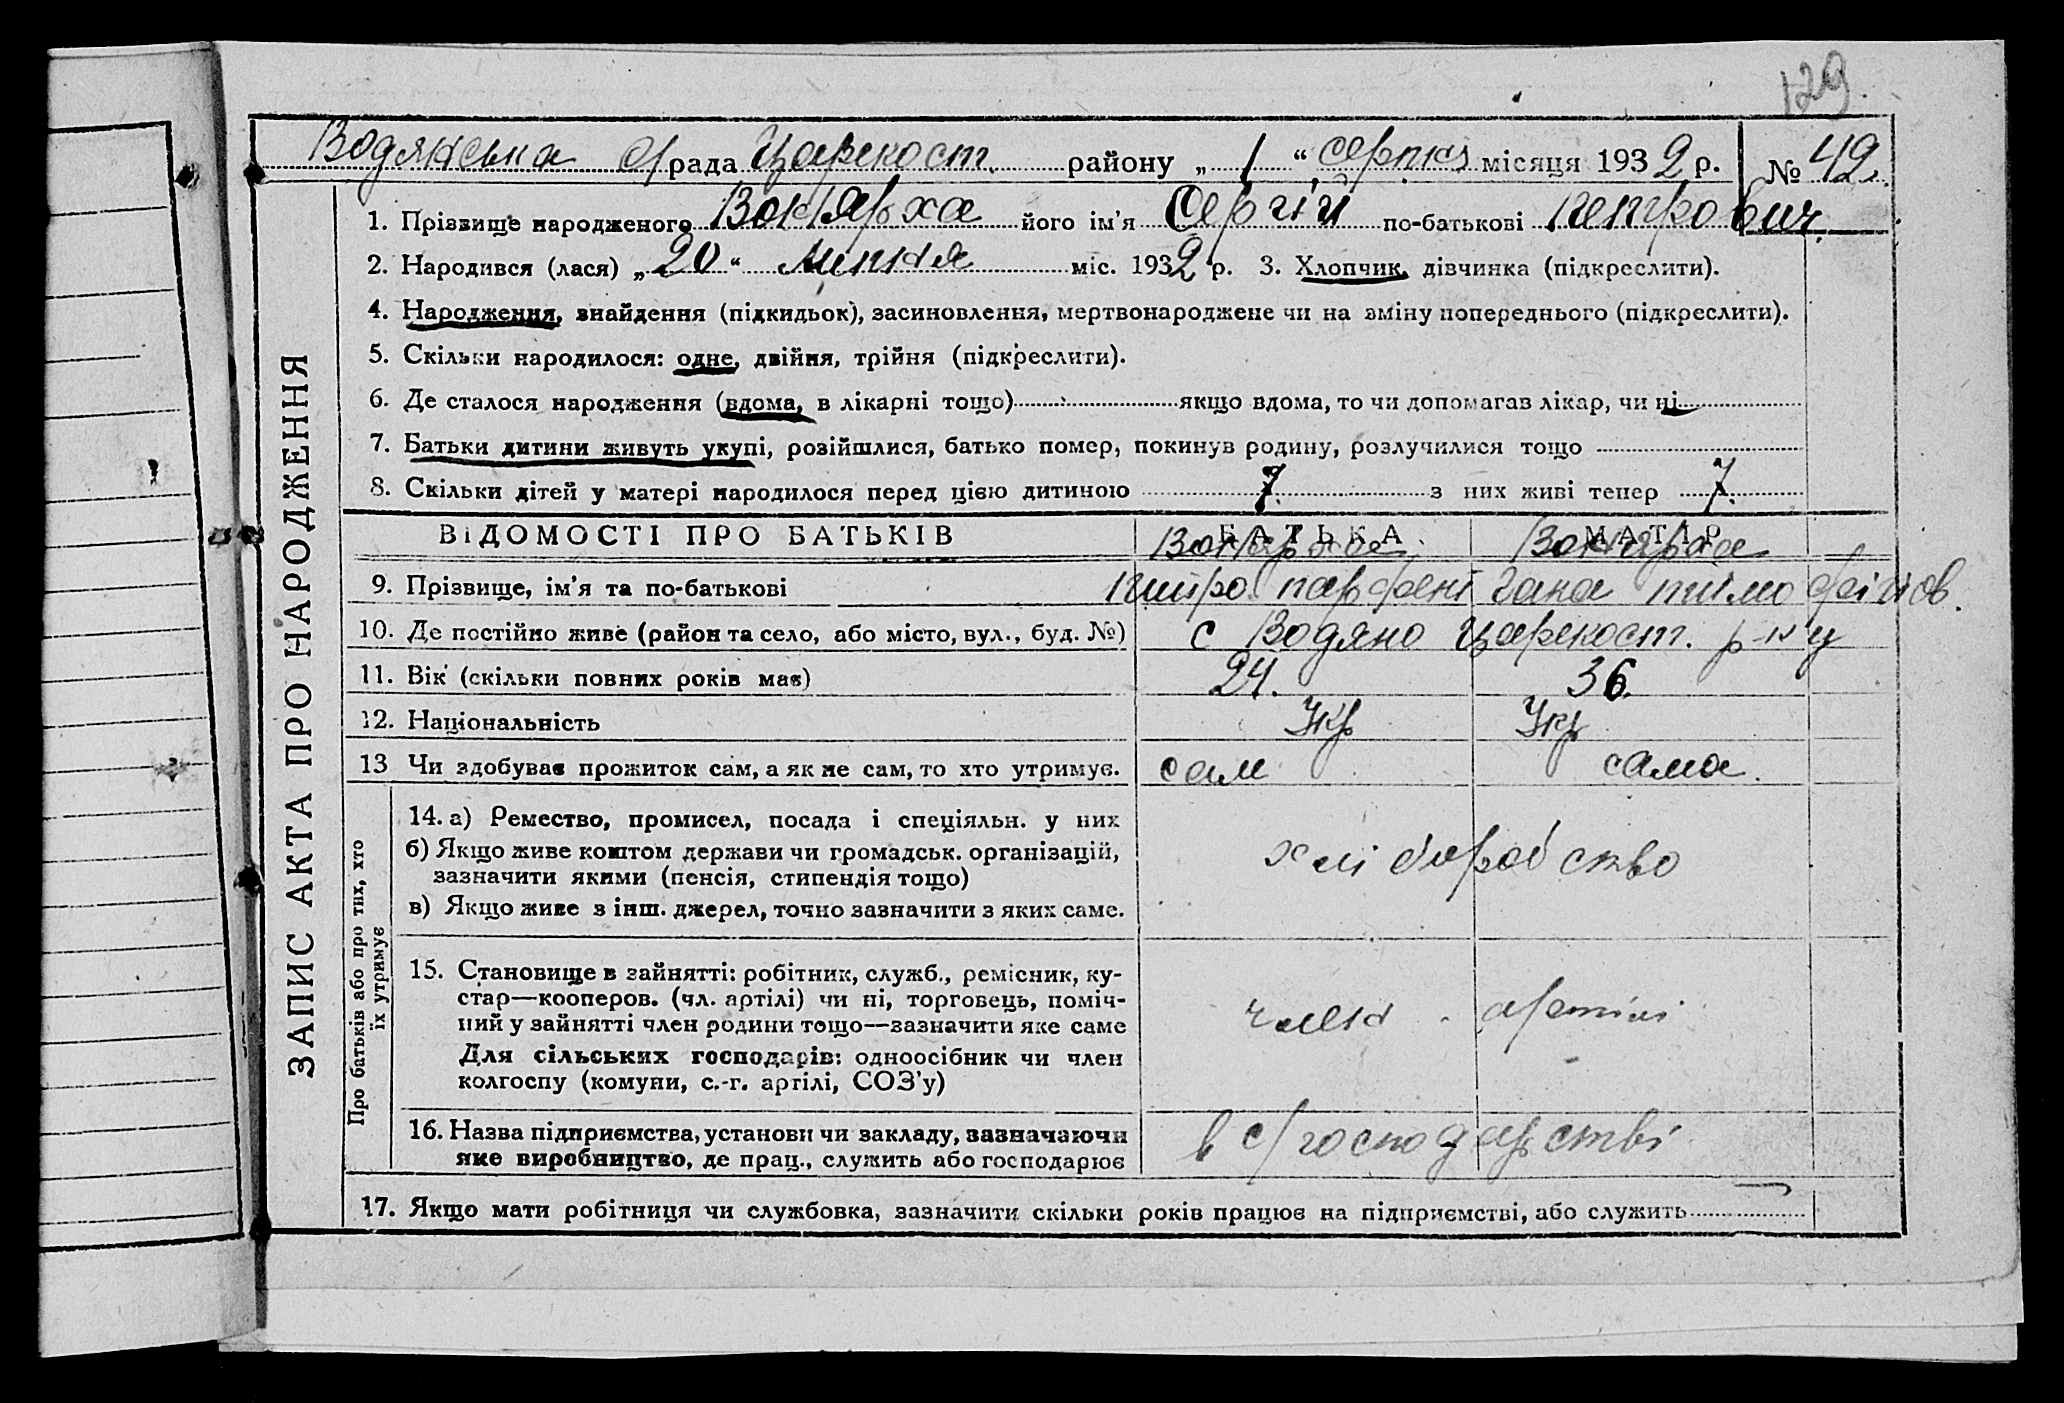 129.
Водянська с/рада Царекост. району „ 1 “ серпня місяця 1932 р. № 42.
1. Прізвище народженого Вокярха його ім’я Сергій по-батькові Петрович.
2. Народився (лася) „ 20 “ липня міс. 1932 р. 3. Хлопчик, дівчинка (підкреслити).
4. Народження, знайдення (підкидьок), засиновлення, мертвонароджене чи на зміну попереднього (підкреслити).
5. Скільки народилося: одне, двійня, трійня (підкреслити).
6. Де сталося народження (вдома, в лікарні тощо) якщо вдома, то чи допомагав лікар, чи ні
7. Батьки дитини живуть укупі, розійшлися, батько помер, покинув родину, розлучилися тощо
8. Скільки дітей у матері народилося перед цією дитиною 7. з них живі тепер 7.
ВІДОМОСТІ ПРО БАТЬКІВ БАТЬКА МАТІР
9. Прізвище, ім’я та по-батькові
10. Де постійно живе (район та село, або місто, вул., буд. №) с Водяно Царекост. р-ну
11. Вік (скільки повних років має) 24. 36.
12. Національність Укр Укр
13 Чи здобуває прожиток сам, а як не сам, то хто утримує. сам сама.
14. а) Ремество, промисел, посада і спеціяльн. у них
б) Якщо живе коштом держави чи громадськ. організацій,
зазначити якими (пенсія, стипендія тощо)
в) Якщо живе з інш. джерел, точно зазначити з яких саме.
хліборобство
15. Становище в зайнятті: робітник, служб., ремісник, ку-
стар—кооперов. (чл. артілі) чи ні, торговець, поміч-
ний у зайнятті член родини тощо—зазначити яке саме
Для сільських господарів: одноосібник чи член
колгоспу (комуни, с.-г. артілі, СОЗ’у)
член артілі
16. Назва підприємства, установи чи закладу, зазначаючи
яке виробництво, де прац., служить або господарює
в с/господарстві
17. Якщо мати робітниця чи службовка, зазначити скільки років працює на підприємстві, або служить
ЗАПИС АКТА ПРО НАРОДЖЕННЯ
Про батьків або про тих, хто
їх утримує